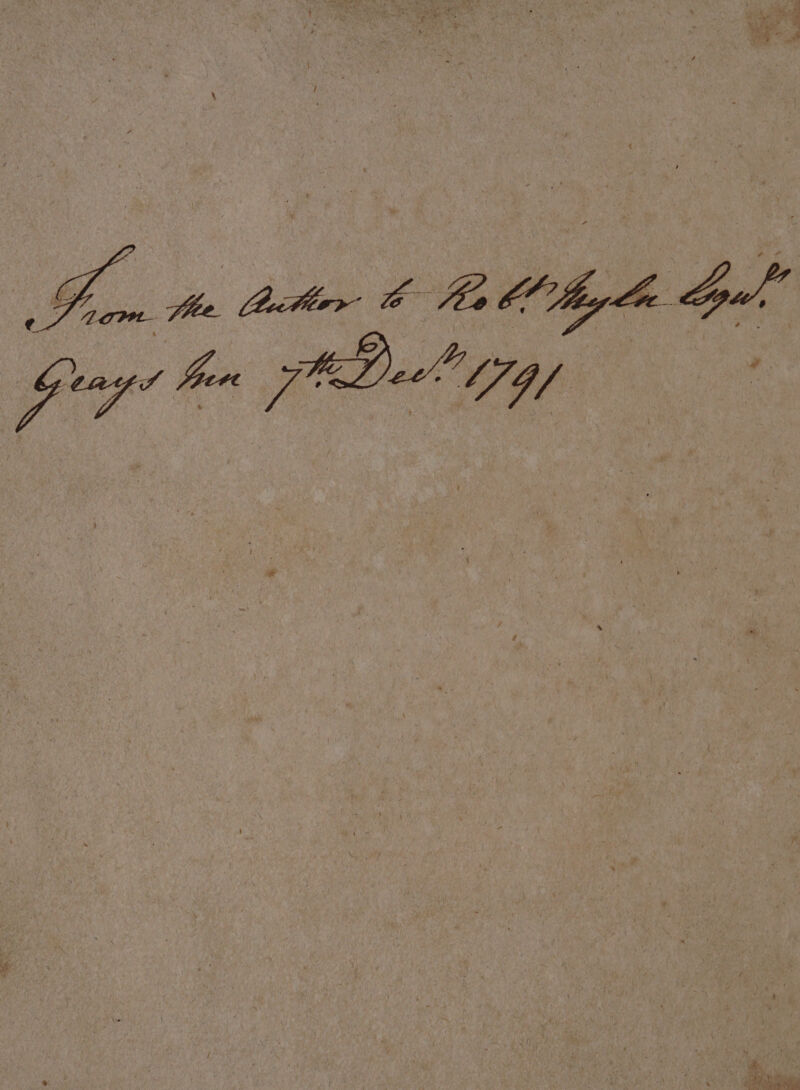 From the Author to Robt. Mylne Esqr.
Grays Inn 7th. Decr. 1791